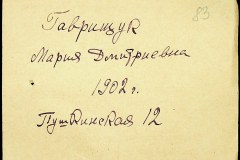 83
Гаврищук
Мария Дмитриевна
1902 г.
Пушкинская 12